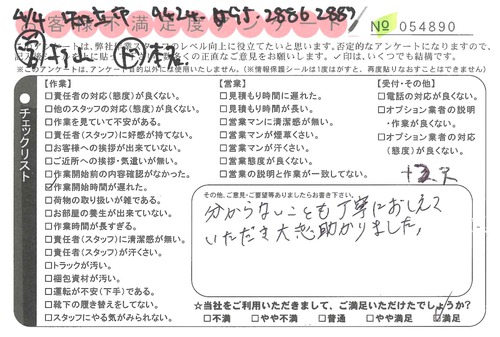 お客様不満足度アンケート
№ 054890
アンケートは、弊社作業スタッフのレベル向上に役立てたいと思います。否定的なアンケートになりますので、
正直なご意見をお願いします。✓印は、いくつでも結構です。
※このアンケートは、アンケート目的以外には使用いたしません。(※情報保護シールは1度はがすと、再度貼りなおすことはできません)
チェックリスト
【作業】
□責任者の対応(態度)が良くない。
□他のスタッフの対応(態度)が良くない。
□作業を見ていて不安がある。
□責任者(スタッフ)に好感が持てない。
□お客様への挨拶が出来ていない。
□ご近所への挨拶・気遣いが無い。
□作業開始前の内容確認がなかった。
☑作業開始時間が遅れた。
□荷物の取り扱いが雑である。
□お部屋の養生が出来ていない。
□作業時間が長すぎる。
□責任者(スタッフ)に清潔感が無い。
□責任者(スタッフ)が汗くさい。
□トラックが汚い。
□梱包資材が汚い。
□運転が不安(下手)である。
□靴下の履き替えをしてない。
□スタッフにやる気がみられない。
【営業】
□見積もり時間に遅れた。
□見積もり時間が長い。
□営業マンに清潔感が無い。
□営業マンが煙草くさい。
□営業マンが汗くさい。
□営業態度が良くない。
□営業の説明と作業が一致してない。
【受付・その他】
□電話の対応が良くない。
□オプション業者の説明
・作業が良くない。
□オプション業者の対応
(態度)が良くない。
その他、ご意見・ご要望等ありましたらお書き下さい。
分からないことも丁寧におしえて
いただき大変助かりました。
☆当社をご利用いただきまして、ご満足いただけたでしょうか?
□不満 □やや不満 □普通 □やや満足 ☑満足